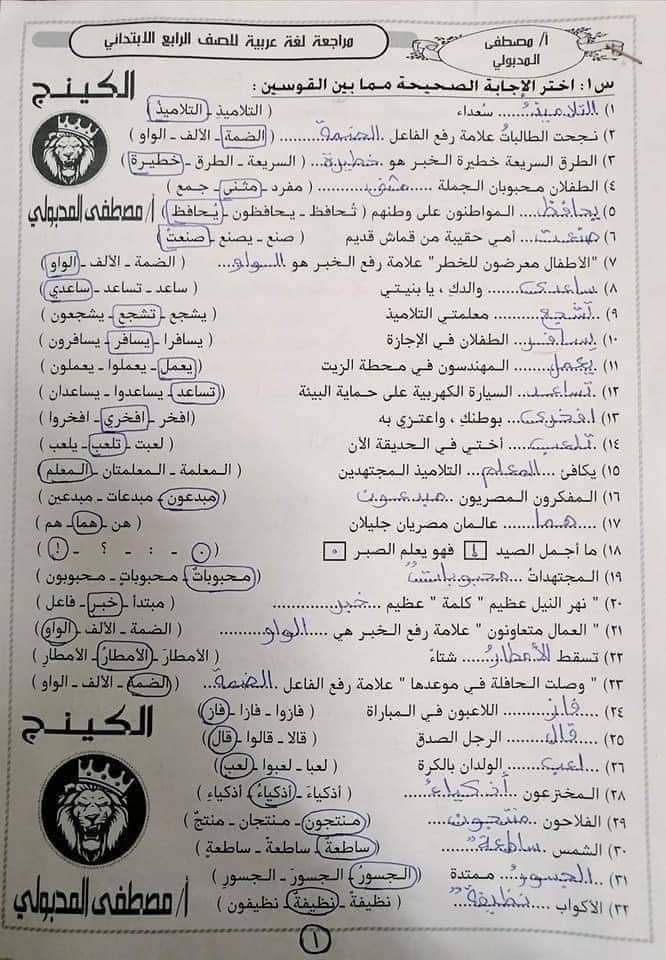 أ/ مصطفى المدبولي
مراجعة لغة عربية للصف الرابع الابتدائي
الكينج
أ/ مصطفى المدبولي
س١: اختر الإجابة الصحيحة مما بين القوسين :
١) التلاميذُ سُعداء ( التلاميذِ ـ التلاميذُ )
٢) نجحت الطالباتُ علامة رفع الفاعل الضمة ( الضمة ـ الألف ـ الواو )
٣) الطرق السريعة خطيرة الخبر هو خطيرة ( السريعة ـ الطرق ـ خطيرة )
٤) الطفلان محبوبان الجملة مثنى ( مفرد ـ مثنى ـ جمع )
٥) يحافظ المواطنون على وطنهم ( تُحافظ ـ يـحافظون ـ يُـحافظ )
٦) صنعت أمي حقيبة من قماش قديم ( صنع ـ يصنع ـ صنعتْ )
٧) "الأطفال معرضون للخطر" علامة رفع الـخبر هو الواو ( الضمة ـ الألف ـ الواو )
٨) ساعدي والدكِ ، يا بنيتي ( ساعد ـ تساعد ـ ساعدي )
٩) تشجع معلمتي التلاميذ ( يشجع ـ تشجع ـ يشجعون )
١٠) يسافر الطفلان في الإجازة ( يسافرا ـ يسافر ـ يسافرون )
١١) يعمل المهندسون في محطة الزيت ( يعمل ـ يعملوا ـ يعملون )
١٢) تساعد السيارة الكهربية على حماية البيئة ( تساعد ـ يساعدوا ـ يساعدان )
١٣) افخري بوطنكِ ، واعتزي به ( افخر ـ افخري ـ افخروا )
١٤) تلعب أختي في الحديقة الآن ( لعبت ـ تلعب ـ يلعب )
١٥) يكافئ المعلم التلاميذ المجتهدين ( المعلمة ـ المعلمتان ـ المعلم )
١٦) الـمفكرون الـمصريون مبدعون ( مبدعون ـ مبدعات ـ مبدعين )
١٧) هما عالـمان مصريان جليلان ( هن ـ هما ـ هم )
١٨) ما أجمل الصيد ! فهو يعلم الصبر . ( . ـ : ـ ؟ ـ ! )
١٩) الـمجتهداتُ محبوباتٌ ( مـحبوباتٌ ـ محبوباتٍ ـ محبوبون )
٢٠) " نهر النيل عظيم " كلمة " عظيم خبر ( مبتدأ ـ خبر ـ فاعل )
٢١) " العمال متعاونون " علامة رفع الـخبر هي الواو ( الضمة ـ الألف ـ الواو )
٢٢) تسقط الأمطارُ شتاءً ( الأمطارَ ـ الأمطارُ ـ الأمطارِ )
٢٣) " وصلت الحافلة في موعدها " علامة رفع الفاعل الضمة ( الضمة ـ الألف ـ الواو )
٢٤) فاز اللاعبون في الـمباراة ( فازوا ـ فازا ـ فاز )
٢٥) قال الرجل الصدق ( قالا ـ قالوا ـ قال )
٢٦) لعب الولدان بالكرة ( لعبا ـ لعبوا ـ لعب )
٢٨) الـمخترعون أذكياءُ ( أذكياءَ ـ أذكياءُ ـ أذكياءِ )
٢٩) الفلاحون منتجون ( منتجون ـ منتجان ـ منتجٌ )
٣٠) الشمس ساطعةٌ ( ساطعةٌ ـ ساطعةً ـ ساطعةٍ )
٣١) الجسورُ مـمتدة ( الجسورُ ـ الجسورَ ـ الجسورِ )
٣٢) الأكواب نظيفةٌ ( نظيفةً ـ نظيفةٌ ـ نظيفون )
الكينج
أ/ مصطفى المدبولي
١